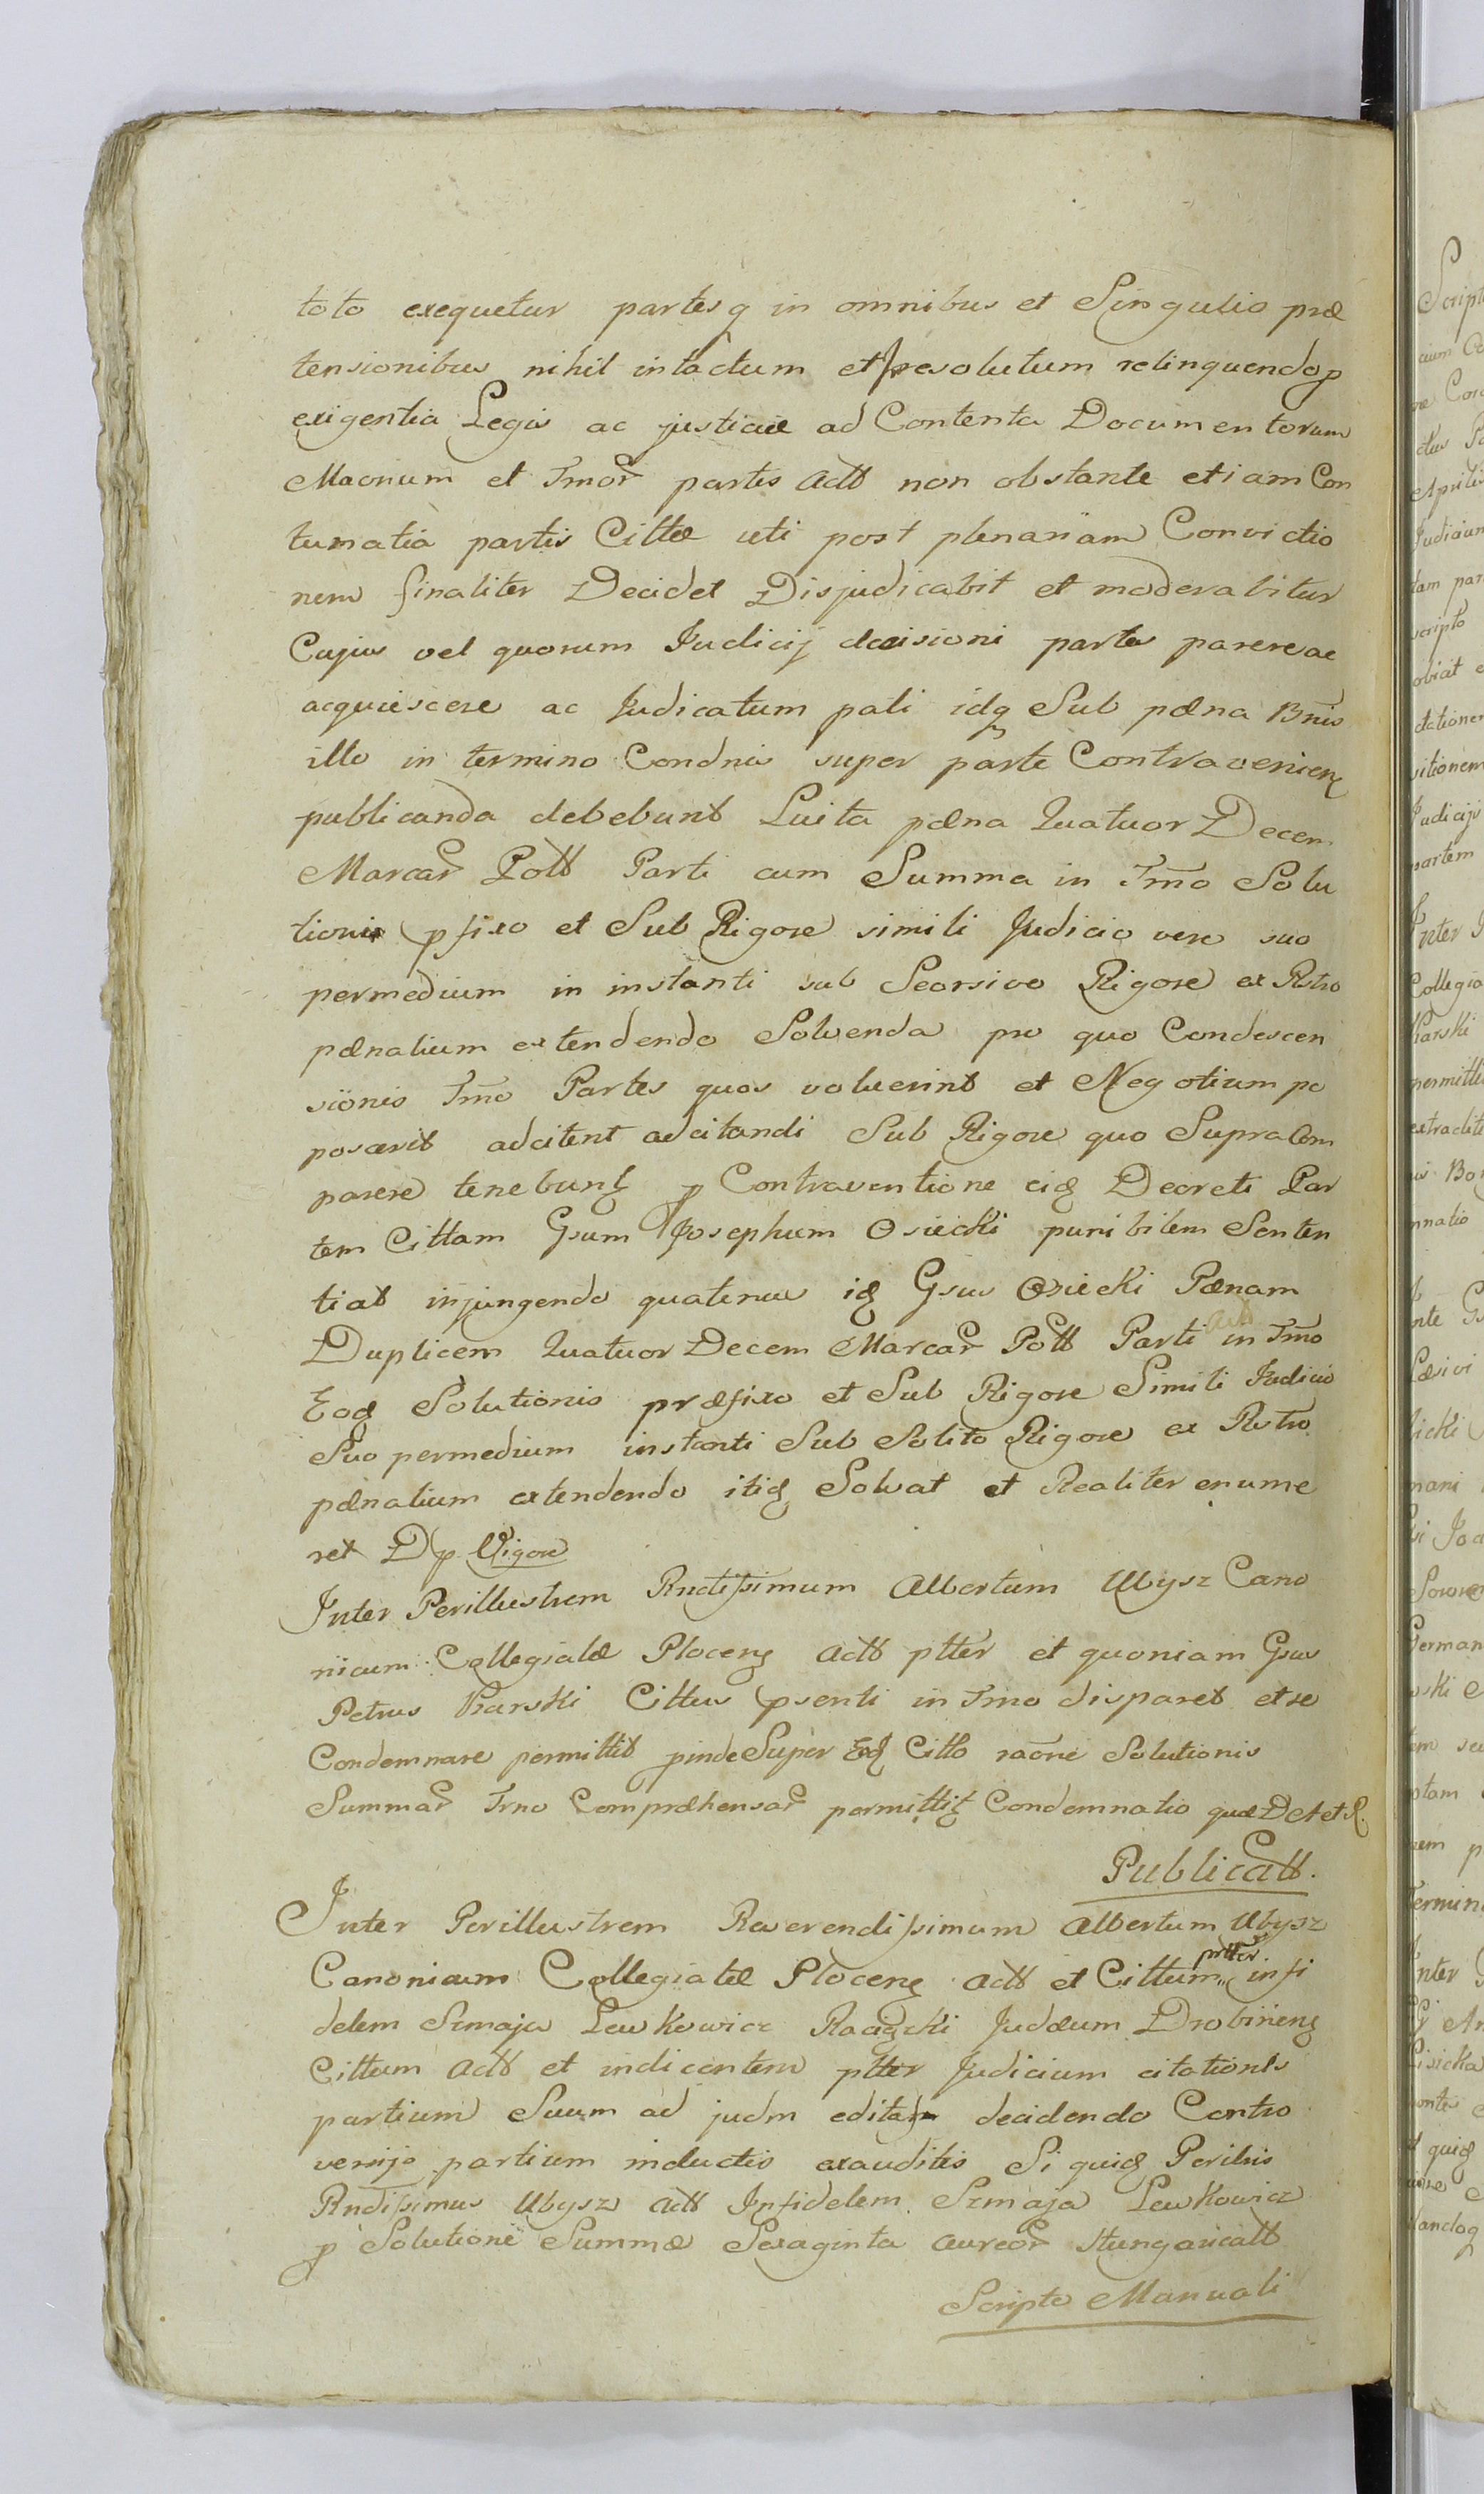 toto exequetur partesq in omnibus et Singulis præ
tensionibus nihil intactum et irresolutum relinquendo p
exigentia Legis ac justiciæ ad Contenta Documentorum
Maonum et Tmor partis Actt non obstante etiam Con
tumatia partis Cittæ uti post plenariam Convictio
nem finaliter Decidet Disjudicabit et moderabitur
Cujus vel quorum Judicij decisioni partes parere ac
acquiescere ac Judicatum pati idq Sub pæna Bnis
illo in termino Condnis super parte Contravenien
publicanda debebunt Luita pæna Quatuor Decem
Marcar Pott Parti cum Summa in Tmo Solu
tionis pfixo et Sub Rigore simili Judicio vero suo
permedium in instanti sub Seorsivo Rigore ex Rstro
pænalium extendendo Solvenda pro quo Condescen
sionis Tmo Partes quos voluerint et Negotium po
poscerit adcitent adcitandi Sub Rigore quo Supra Com
parere tenebunt p Contraventione eid Decreti Par
tem Cittam Gsum Josephum Osiecki punibilem Senten
tiat injungendo quatenus id Gsus Osiecki Pænam
Duplicem Quatuor Decem Marcar Pott Parti Actt in Tmo
Eod Solutionis præfixo et Sub Rigore Simili Judicio
Suo permedium instanti Sub Solito Rigore ex Rstro
pænalium extendendo itid Solvat et Realiter enume
ret D p Vigore
Inter Perillustrem Rndissimum Albertum Ubysz Cano
nicum Collegiatæ Plocen Actt ptter et quoniam Gsus
Petrus Karski Cittus psenti in Tmo disparet et se
Condemnare permittit pinde Super Eod Citto raone Solutionis
Summar Trno Compræhensar permittit Condemnatio quæ D et et R.
Publicatt.
Inter Perillustrem Reverendissimum Albertum Ubysz
Canonicum Collegiatæ Plocen Actt et Cittum ptter infi
delem Szmaja Lewkowicz Raciązki Judæum Drobinen
Cittum Actt et indicentem ptter Judicium citationis
partium Suum ad judm editam decidendo Contro
versijs partium inductis exauditis Si quid Perilris
Rndissimus Ubysz Actt Infidelem Szmaja Lewkowicz
p Solutione Summæ Sexaginta aureor Hungaricatt
Scripto Manuali